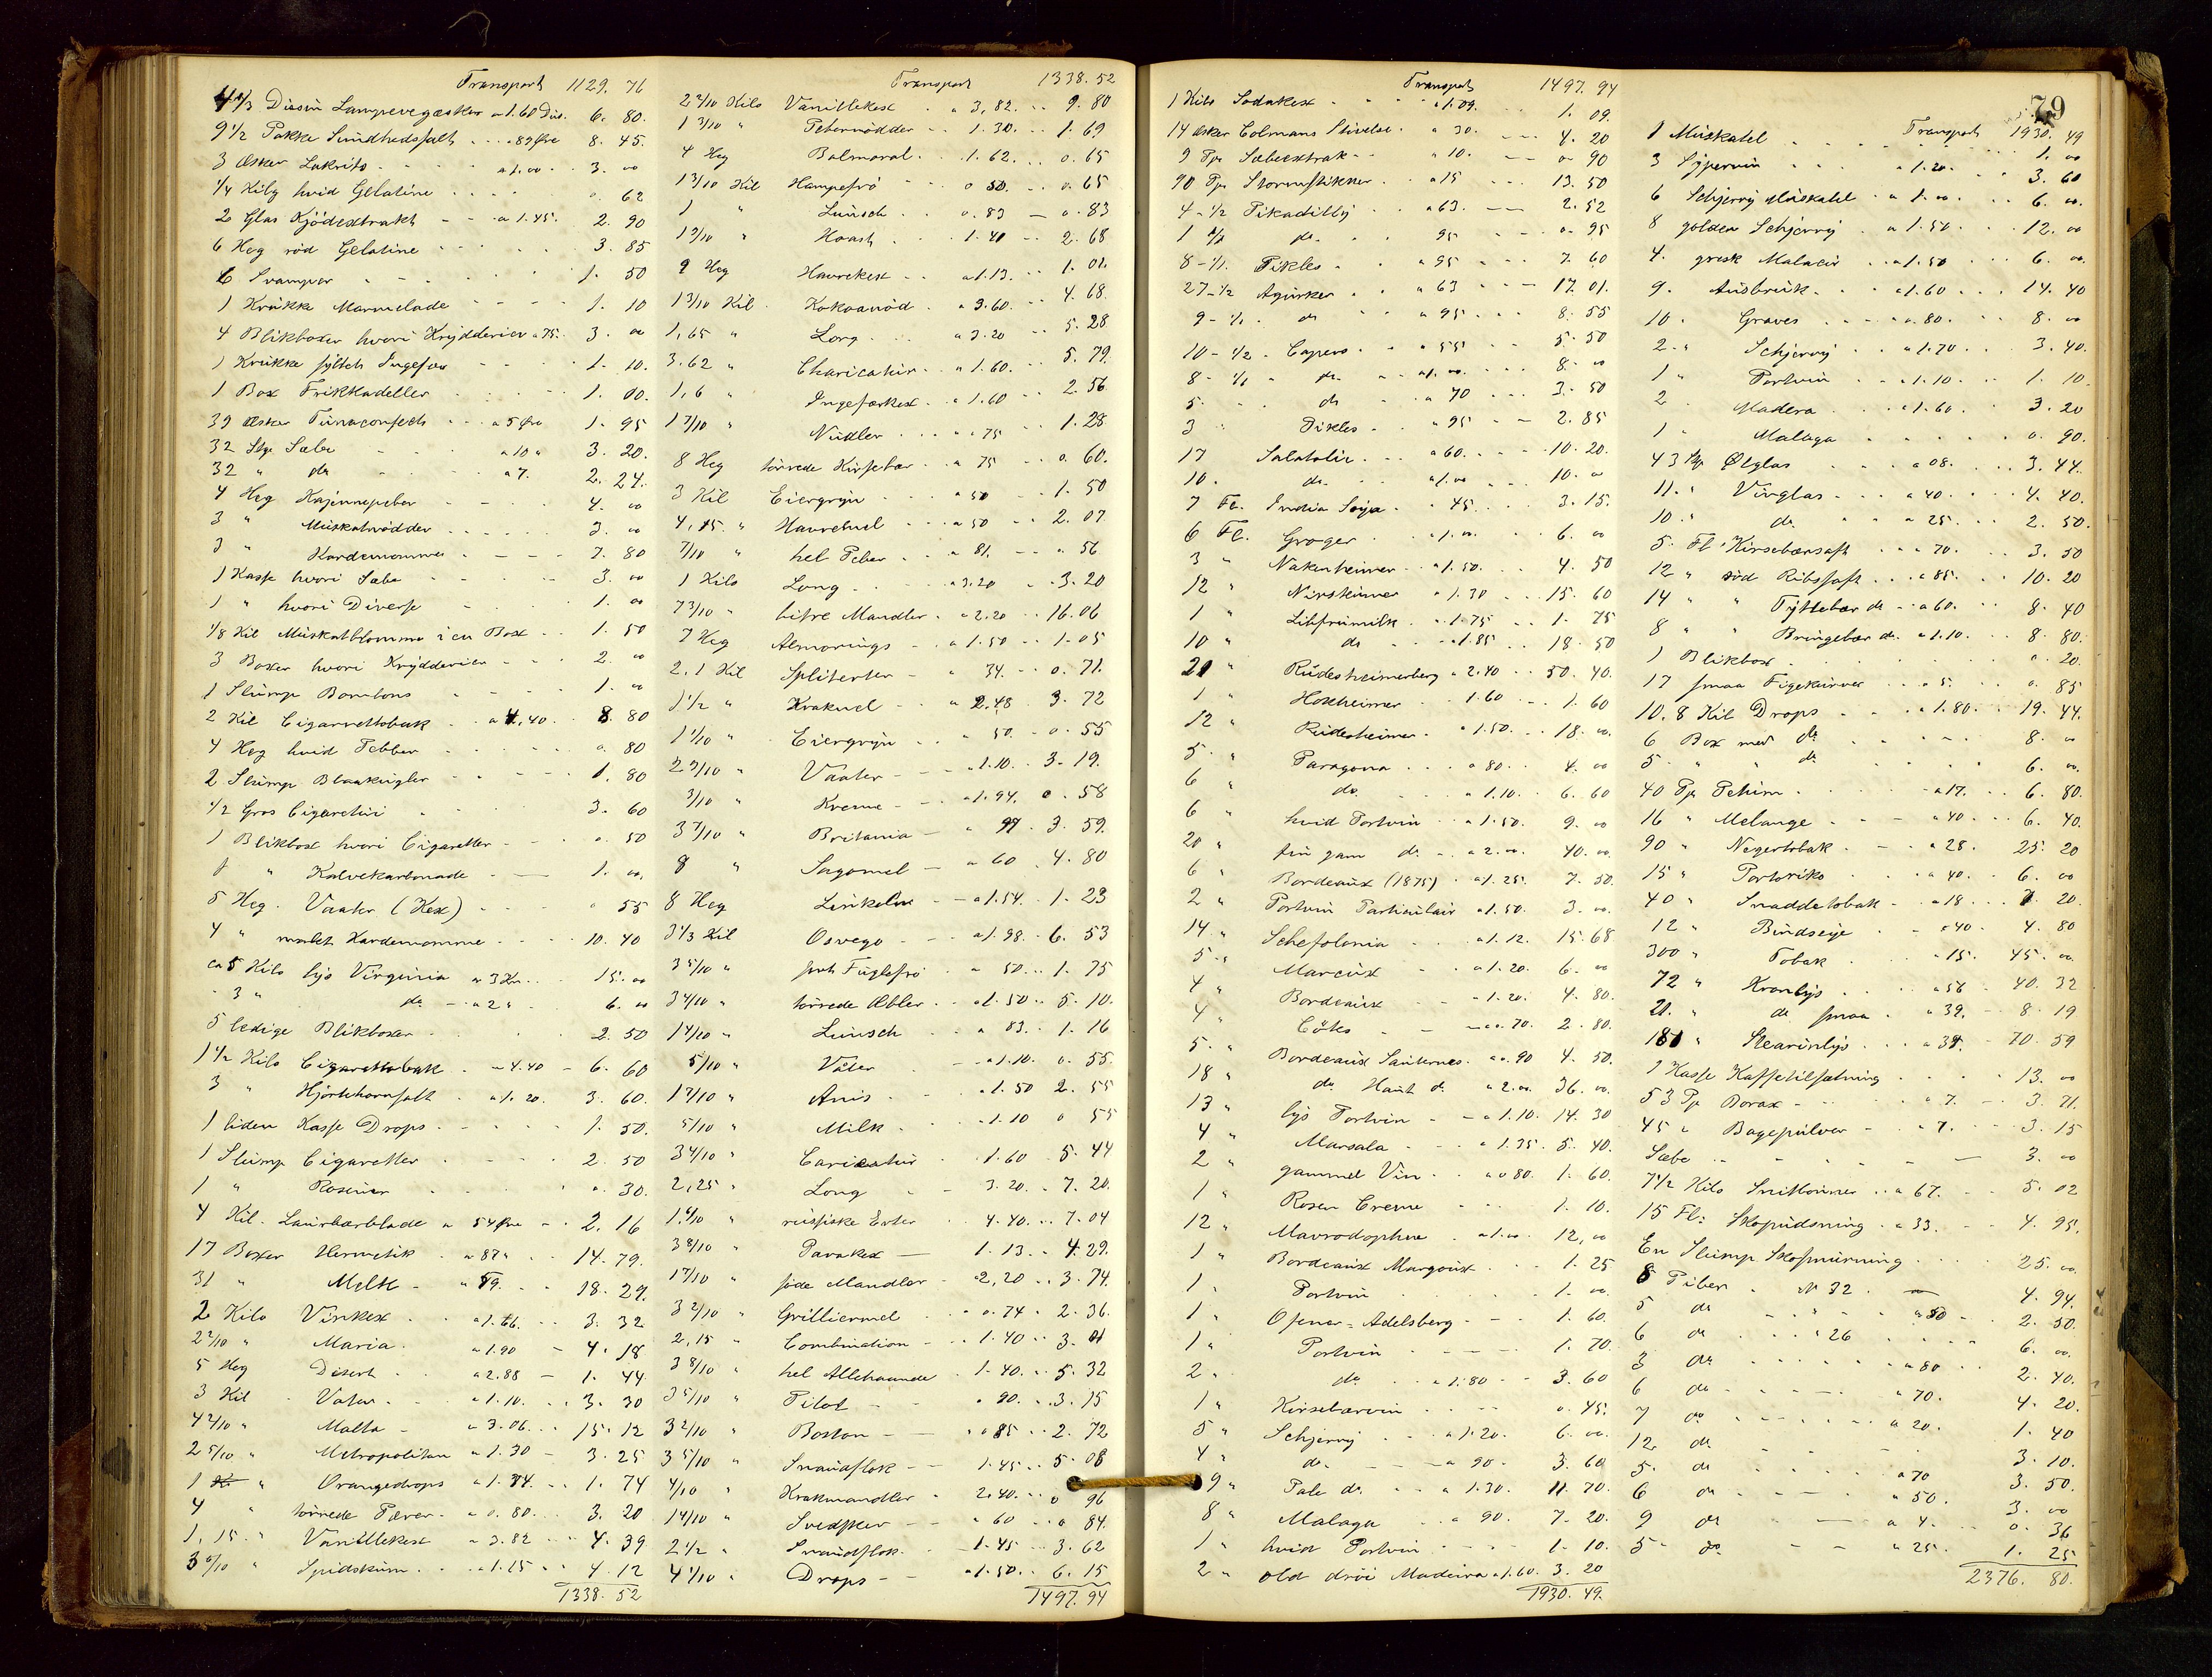 Transport 1129. 76
4 1/3 Dusin Lampevegæsker a 1.60 Dus. 6. 80.
9 1/2 Pakke Sundhedssalt . . . a 89 Øre 8. 45.
3 Æsker Lakrits a 1.00 3. 00
1/4 Kilo hvid Gelatine 0. 62
2 Glas Kjödextrakt a 1.45. 2. 90
6 Heg röd Gelatine 3. 85
6 Svamper 1. 50
1 Krukke Marmelade 1. 10
4 Blikboxer hvori Krydderier a 75. 3. 00
1 Krukke syltet Ingefær 1. 10.
1 Box Frikkadeller 1. 00.
39 Æsker Tunaconfect a 5 Øre 1. 95
32 Stk Sæbe a 10 " 3. 20.
32 " do a 7. 2. 24.
4 Heg Kajennepeber 4. 00
3 " Muskatnödder 3. 00
3 " Kardemomme 7. 80
1 Kasse hvori Sæbe 3. 00
1 " hvori Diverse 1. 00
1/8 Kil Muskatblomme i en Box 1. 50
3 Boxer hvori Krydderier 2. 00
1 Slump Bonbons 1. 00
2 Kil Cigarettobak a 4,40 8. 80
4 Heg hvid Pebber 0. 80
2 Slump Blaakugler 1. 80
1/2 Gros Cigaretui 3. 60
1 Blikbox hvori Cigaretter 0. 50
1 " Kalvekarbonade 1. 00.
5 Heg. Vaater (Kex) 0. 55
4 " malet Kardemomme 10. 40
ca 5 Kilo lys Virginia a 3 Kr. 15. 00
" 3 " do a 2 " 6. 00
5 ledige Blikboxer 2. 50
1 1/2 Kilo Cigarettobak 4.40 6. 60
3 " Hjortehornsalt a 1. 20. 3. 60.
1 liden Kasse Drops 1. 50.
1 Slump Cigaretter 2. 50
1 " Rosiner 0. 30.
4 Kil. Laurbærblade a 54 Øre 2. 16
17 Boxer Hermetik a 87 " 14. 79.
31 " Melk a 59. 18. 29.
2 Kilo Vinkex a 1.66. 3. 32
2 2/10 " Maria a 1.90 4. 18
5 Heg Desert a 2.88 1. 44
3 Kil Vater a 1.10. 3. 30
4 2/10 " Malta a 3.06. 15. 12
2 5/10 " Metropolitan a 1.30 3. 25
1 " Orangedrops a 1.74. 1. 74
4 " törrede Pærer a 0.80. 3. 20
1,15 " Vanillekex a 3.82 4. 39
3 6/10 " Spidskum a 1.15 4. 12
1338. 52
Transport 1338. 52
2 5/10 Kilo Vanillekex a 3,82. 9. 80
1 3/10 " Pebernödder 1.30. 1. 69
4 Heg Balmoral 1.62. 0. 65
1 3/10 Kil Hampefrö 0 50. 0. 65
1 " Lunsch 0. 83 0. 83
1 9/10 " Hoast 1.41 2. 68
9 Heg Havrekex a 1.13. 1. 01.
1 3/10 Kil Kokosnöd a 3.60. 4. 68.
1,65 " Long a 3.20 5. 28
3.62 " Charicatur a 1.60. 5. 79.
1,6 " Ingefærkex a 1.60 2. 56
1 7/10 " Nudler a 75 1. 28
8 Heg törrede Kirsebær a 75 0. 60.
3 Kil Eiergryn a 50 1. 50
4,15 " Havremel a 50 2. 07
7/10 " hel Peber a 81. 0. 56
1 Kilo Long a 3.20 3. 20
7 3/10 " bitre Mandler a 2.20 16. 06
7 Heg Almorings a 1.50 1. 05
2,1 Kil Spliterter a 34. 0. 71.
1 1/2 " Krakmel a 2.48 3. 72
1 1/10 " Eiergryn a 50. 0. 55
2 9/10 " Vaater a 1.10. 3. 19.
3/10 " Kreme a 1.94. 0. 58
3 7/10 " Britania a 97 3. 59.
8 " Sagomel a 60 4. 80
8 Heg a 1.54. 1. 23
3 1/3 Kil Osvego a 1.98. 6. 53
3 5/10 " sort Fuglefrö a 50. 1. 75
3 4/10 " törrede Æbler a 1.50 5. 10.
1 4/10 " Lunsch a 83. 1. 16
5/10 " Vater a 1.10. 0. 55
1 7/10 " Anis a 1.50 2. 55
5/10 " Milk a 1.10 0 55
3 4/10 " Caricatur 1.60 5. 44
2,25 " Long 3. 20. 7. 20.
1.6/10 " russiske Erter 4.40. 7. 04
3 8/10 " Parakex 1.13. 4. 29.
1 7/10 " söde Mandler a 2,20 3. 74.
3 2/10 " Grilliermel a 0. 74 2. 36.
2,15 " Combination 1.40 3. 01
3 8/10 " hel Allehaande 1.40. 5. 32
3 5/10 " Pilot a 90. 3. 15
3 2/10 " Boston a 85 2. 72
3 5/10 " Snaudflok 1.45 5. 08
4/10 " Krakmandler 2.40. 0 96
1 4/10 " Svedsker a 60 0 84.
2 1/2 " Snaudflok 1.45 3. 62
4 1/10 " Drops a 1.50. 6. 15
1497. 94
Transport 1497. 94
1 Kilo Sodakex a 1.09. 1. 09.
14 Æsker Colmans Stivelse a 30. 4. 20
9 Pk Sæbeextrak a 10. 0 90
90 Pk Stormstikker a 15 13. 50
4 - 1/2 Pikadilly a 63. 2. 52
1 1/1 do 95 0. 95
8 - 1/1. Pikles a 95 7. 60
27 - 1/2 Agurker a 63 17. 01.
9 - 1/1. do a 95 8. 55
10 - 1/2 - Capers a 55 5. 50
8 - 1/1 " do a 1.00 8. 00
5. do a 70 3. 50
3 " Pikles a 95 2. 85
17 Salatolie a 60. 10. 20.
10. do a 1.00 10. 00
7 Fl. India Soya 45. 3. 15.
6 Fl. Groger a 1.00. 6. 00
3 " Nakenheimer a 1.50. 4. 50
12 " Nirsteiner a 1.30 15. 60
1 " Libfrumilk a 1.75 1. 75
10 " do a 1.85 18. 50
21 " Rudesheimerberg a 2.40 50. 40.
1 " Hokheimer 1.60 1. 60
12 " Rudesheimer a 1.50. 18. 00.
5 " Paragona a 80. 4. 00
6 " do. a 1.10. 6. 60
6 " hvid Portvin a 1.50. 9. 00
20 " fin gam do a 2.00. 40. 00.
6 " Bordeaux (1875) a 1.25. 7. 50.
2 " Portvin Particulair a 1.50. 3. 00.
14 " Schefolonia a 1.12. 15. 68
5 " Marcux a 1.20. 6. 00
4 " Bordeaux 1.20. 4. 80.
4 " a 0.70. 2. 80.
5 " Bordeaux Sauternes a 0.90 4. 50.
18 " do Haut do a 2.00. 36. 00.
13 " lys Portvin a 1.10. 14. 30
4 " Marsala a 1.35. 5. 40.
2 " gammel Vin a 0 80. 1. 60.
1 " Rosen Creme 1. 10.
12 " Mavrodaphne a 1.00. 12,00
1 " Bordeaux Margoux 1. 25
1 " Portvin 1. 00.
1 " Ofener=Adelsberg 1. 60.
1 " Portvin 1. 70.
2 " do a 1.80 3. 60
1 " Kirsebærvin 0. 45.
5 " Schjerry a 1.20. 6. 00.
4 " do. a 90. 3. 60
9 " Pale do. a 1.30. 11. 70.
8 " Malaga a 90. 7. 20.
1 " hvid Portvin 1. 10.
2 " old dröi Madeira a 1.60. 3. 20
1930. 49.
79
Transport 1930. 49
1 Muskatel 1. 00
3 Sypervin a 1.20. 3. 60
6 Schjerry Muskatel a 1.00 6. 00.
8 golden Schjerry a 1.50 12. 00
4. gresk Malacir a 1.50 6. 00.
9. Ausbruk a 1.60 14. 40
10. Graves a .80. 8. 00
2. " Schjerry a 1.70 3. 40.
1 " Portvin a 1.10. 1. 10.
2 " Madera a 1.60. 3. 20
1 " Malaga 0. 90.
43 Stk Ølglas a 08. 3. 44.
11. " Vinglas a 40. 4. 40.
10. " do a 25. 2. 50.
5. Fl. Kirsebærsaft a 70. 3. 50
12 " röd Ribssaft a 85. 10. 20
14 " " Tyttebær do a 60. 8. 40
8 " " Bringebær do. a 1.10. 8. 80.
1 Blikbox 0. 20.
17 smaa Figekurver a 5. 0. 85
10.8 Kil Drops a 1.80. 19. 44.
6 Box med do 8. 00
5 " " do 6. 00.
40 Pk Petum a 17. 6. 80.
16 " Melange a 40 6. 40.
90 " Negertobak a 28. 25. 20
15 " Portoriko a 40. 6. 00
40 " Snaddetobak a 18 7. 20.
12 " Bindseye a 40 4. 80
300 " Tobak a 15. 45. 00.
72 " Kronlys a 56 40. 32
21. " do smaa a 39. 8. 19
181 " Stearinlys a 39. 70. 59
1 Kasse Kaffetilsætning 13. 00
53 Pk Borax a 7. 3. 71.
45 " Bagepulver a 7. 3. 15
Sæbe 3. 00
7 1/2 Kilo a 67. 5. 02
15 Fl: Skopudsning a 33. 4. 95.
En Slump Skosmurning 25. 00.
8 Piber No 32 4. 94.
5 do a 50 2. 50.
6 do " 26 6. 00.
3 do a 80 2. 40.
6 do a 70. 4. 20.
7 do a 20. 1. 40
12. do 3. 10.
5. do a 70 3. 50.
6 do a 50. 3. 00
9 do a 4. 0. 36
5 do a 25. 1. 25
2376. 80.